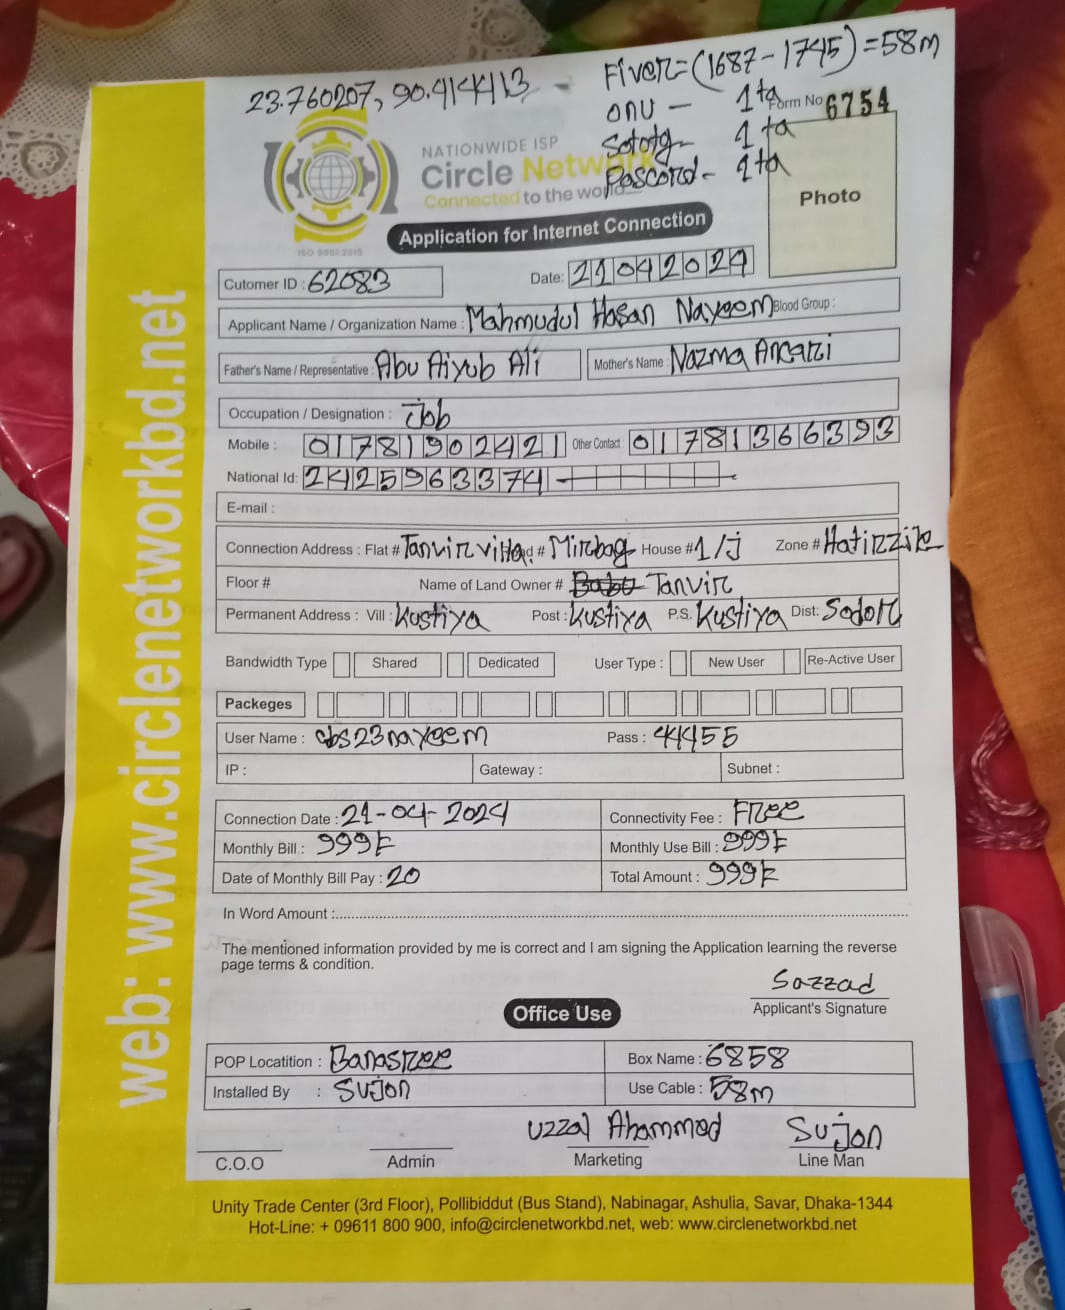 23.760207, 90.414413 - Fiver=(1687-1745)=58m
onu - 1ta
Form No 6754
1 ta
Pascord - 1ta
NATIONWIDE ISP
Circle Network
Connected to the world....
ISO 9001:2015
Photo
Application for Internet Connection
Cutomer ID : 62083 Date: 21042024
Applicant Name / Organization Name : Mahmudul Hasan Nayeem Blood Group :
Father's Name / Representative : Abu Aiyub Ali Mother's Name : Nazma
Occupation / Designation : Job
Mobile : 01781902421 Other Contact 01781366393
National Id: 2425963374
E-mail :
Connection Address : Flat # Tanvir villa # Mirbag House # 1/J Zone # Hatirzile
Floor # Name of Land Owner # Babu Tanvir
Permanent Address : Vill : Kustiya Post : Kustiya P.S. Kustiya Dist: Sodor
Bandwidth Type Shared Dedicated User Type : New User Re-Active User
Packeges
User Name : cbs23nayeem Pass : 44455
IP : Gateway : Subnet :
Connection Date : 21-04-2024 Connectivity Fee : Free
Monthly Bill : 999 Monthly Use Bill : 999
Date of Monthly Bill Pay : 20 Total Amount : 999
In Word Amount :
The mentioned information provided by me is correct and I am signing the Application learning the reverse
page terms & condition.
Sazzad
Applicant's Signature
Office Use
POP Locatition : Banasree Box Name : 6858
Installed By : Sujon Use Cable : 58m
Uzzal Ahammed Sujon
C.O.O Admin Marketing Line Man
Unity Trade Center (3rd Floor), Pollibiddut (Bus Stand), Nabinagar, Ashulia, Savar, Dhaka-1344
Hot-Line: + 09611 800 900, info@circlenetworkbd.net, web: www.circlenetworkbd.net
web: www.circlenetworkbd.net